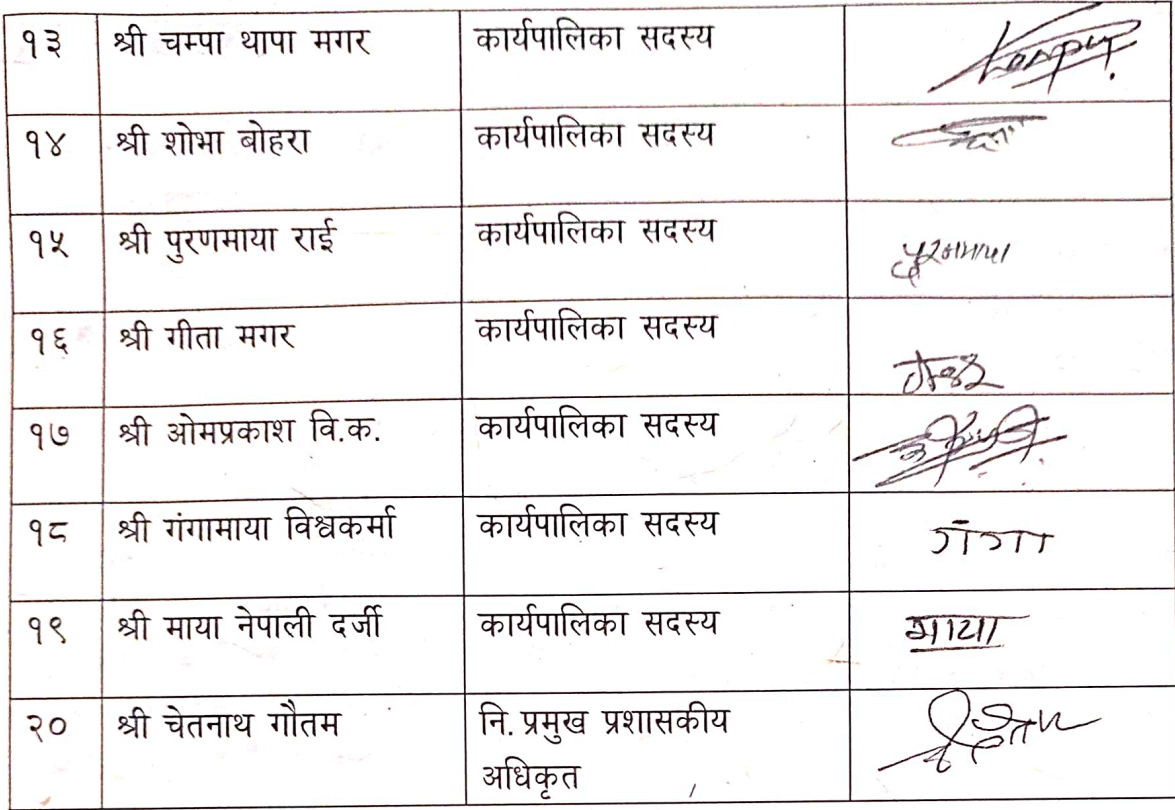 १३ श्री चम्पा थापा मगर कार्यपालिका सदस्य
१४ श्री शोभा बोहरा कार्यपालिका सदस्य
१५ श्री पुरणमाया राई कार्यपालिका सदस्य पुरनमाया
१६ श्री गीता मगर कार्यपालिका सदस्य
१७ श्री ओमप्रकाश वि.क. कार्यपालिका सदस्य
१८ श्री गंगामाया विश्वकर्मा कार्यपालिका सदस्य गंगा
१९ श्री माया नेपाली दर्जी कार्यपालिका सदस्य माया
२० श्री चेतनाथ गौतम नि. प्रमुख प्रशासकीय
अधिकृत